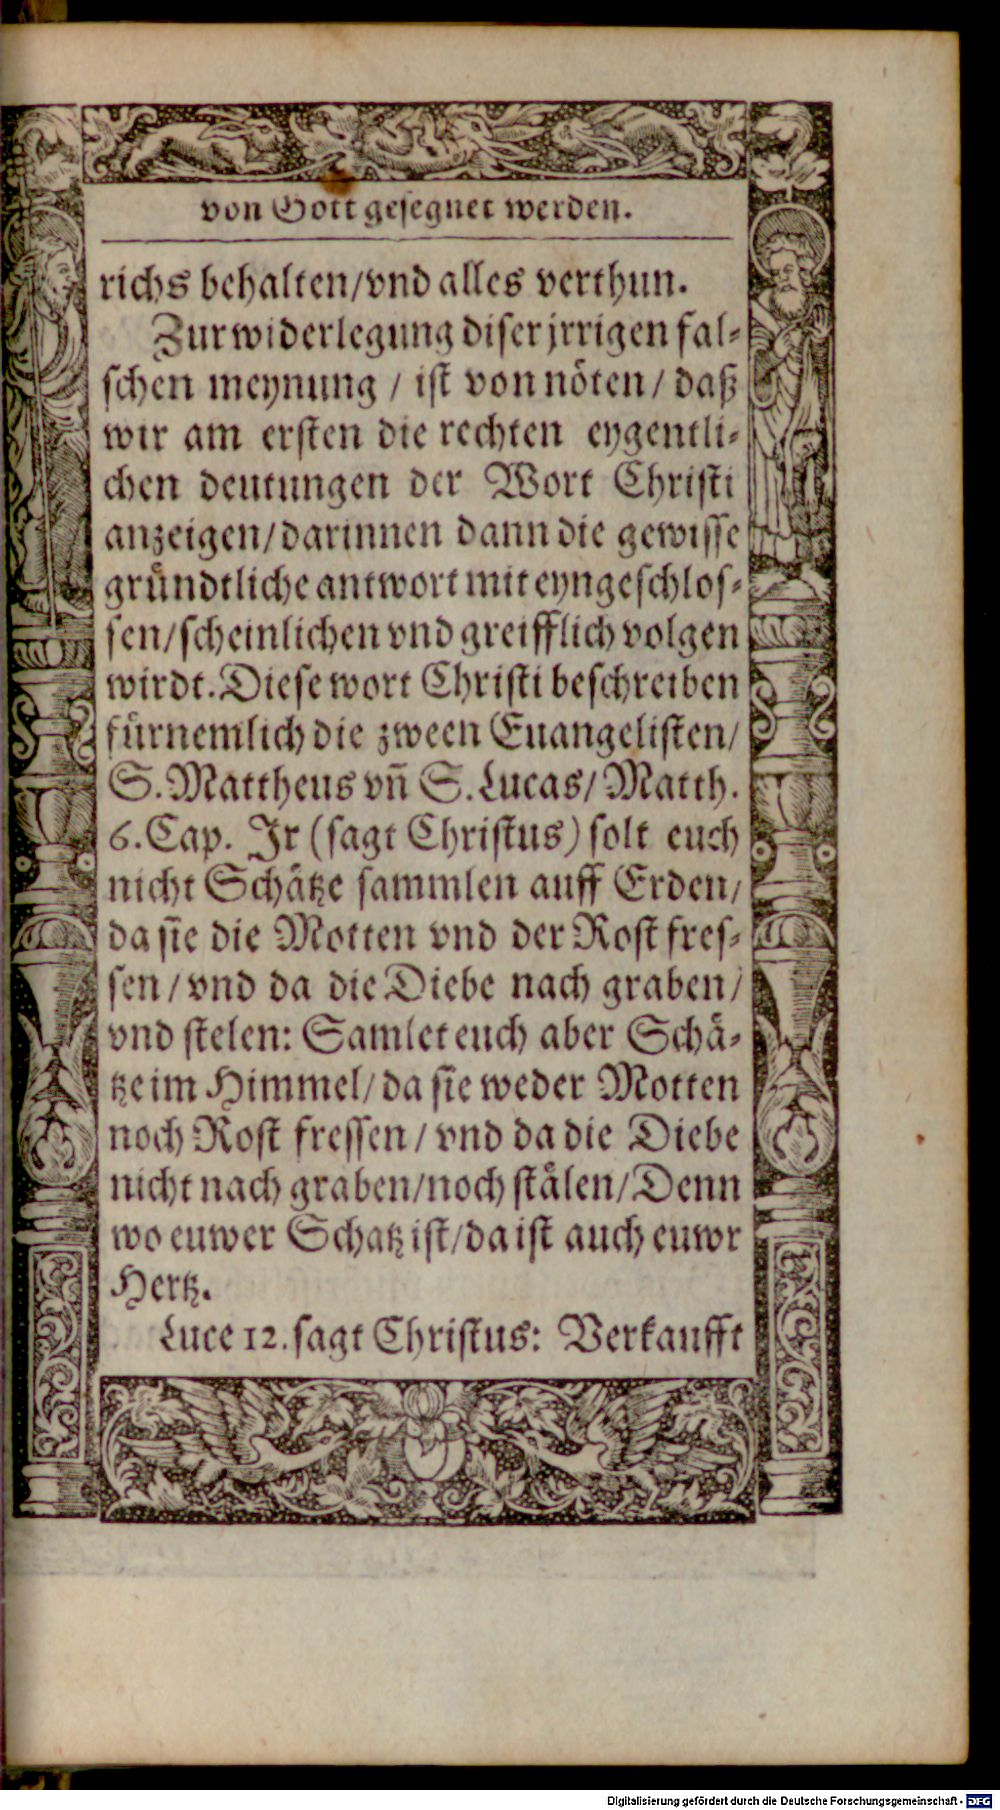 von Gott gesegnet werden.
richs behalten/vnd alles verthun.
Zur widerlegung diser jrrigen fal⸗
schen meynung / ist von nöten/ daß
wir am ersten die rechten eygentli⸗
chen deutungen der Wort Christi
anzeigen/darinnen dann die gewisse
gruͤndtliche antwort mit eyngeschlos⸗
sen/scheinlichen vnd greifflich volgen
wirdt. Diese wort Christi beschreiben
fuͤrnemlich die zween Euangelisten/
S. Mattheus vñ S. Lucas/ Matth.
6. Cap. Jr (sagt Christus) solt euch
nicht Schaͤtze sammlen auff Erden/
da sie die Motten vnd der Rost fres⸗
sen/ vnd da die Diebe nach graben/
vnd stelen: Samlet euch aber Schaͤ⸗
tze im Himmel/ da sie weder Motten
noch Rost fressen/ vnd da die Diebe
nicht nach graben/noch staͤlen/Denn
wo euwer Schatz ist/da ist auch euwr
Hertz.
Luce 12. sagt Christus: Verkaufft
Digitalisierung gefördert durch die Deutsche Forschungsgemeinschaft - DFG